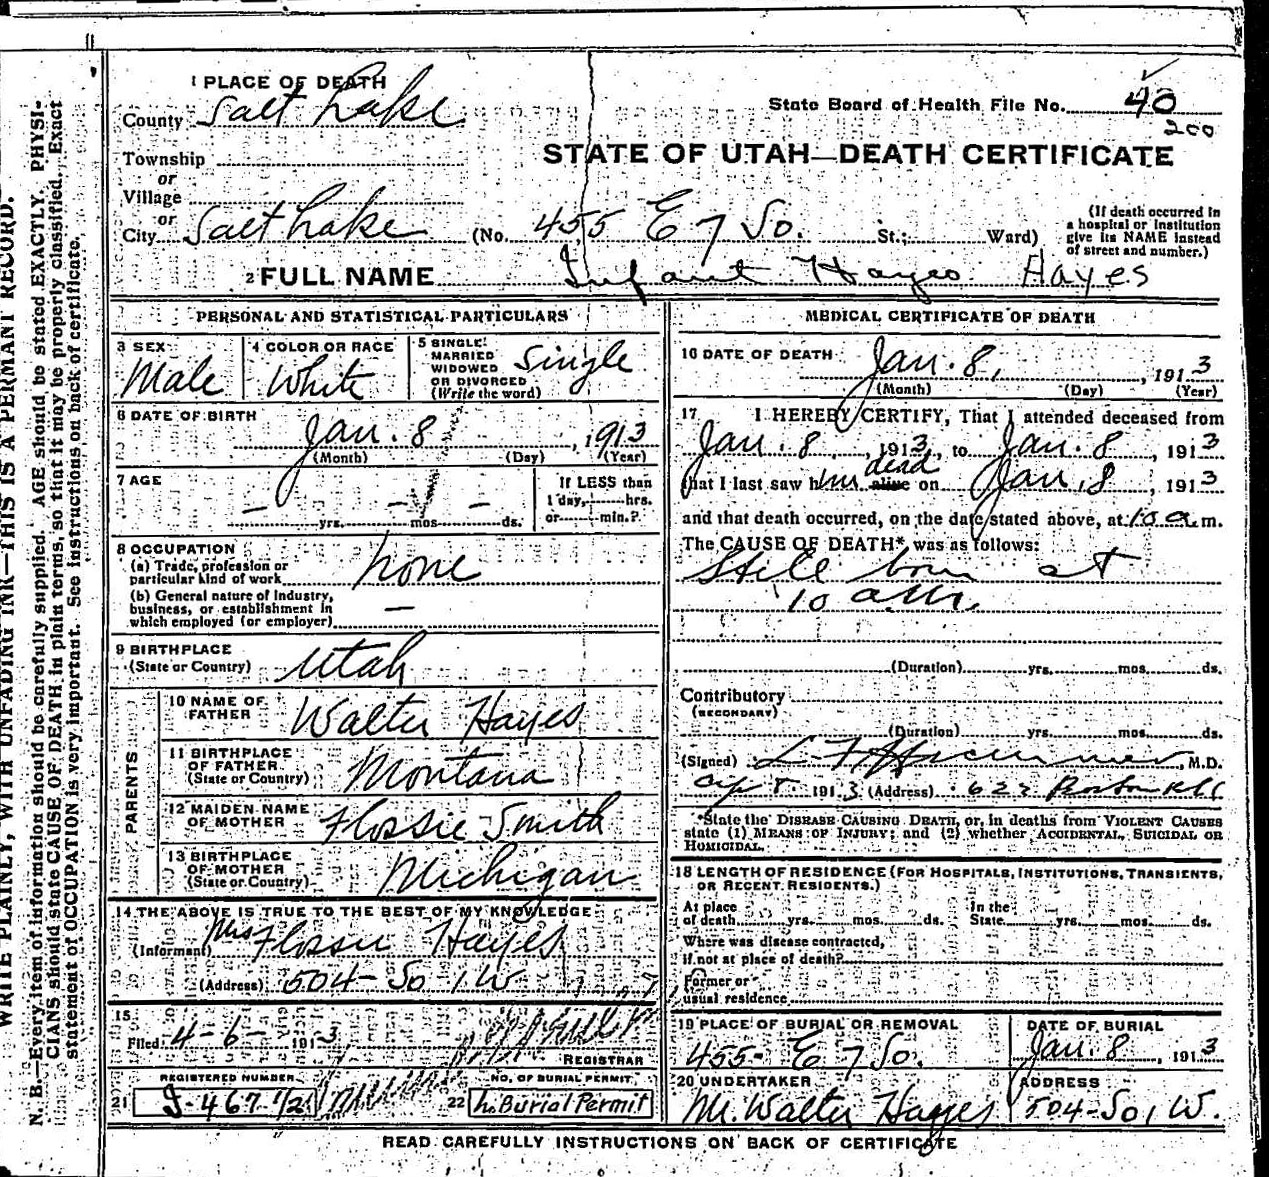 1 PLACE OF DEATH
County Salt Lake
State Board of Health File No. 40
200
Township
or
Village
or
STATE OF UTAH—DEATH CERTIFICATE
City Salt Lake (No. 455 E 7 So. St.; Ward)
(If death occurred in a hospital or institution give its NAME instead of street and number.)
2 FULL NAME Infant Hayes Hayes
PERSONAL AND STATISTICAL PARTICULARS
3 SEX Male
4 COLOR OR RACE White
5 SINGLE, MARRIED WIDOWED OR DIVORCED (Write the word) Single
6 DATE OF BIRTH Jan. 8, 1913
(Month) (Day) (Year)
7 AGE
— yrs. — mos. — ds.
If LESS than 1 day, hrs. or min.?
8 OCCUPATION
(a) Trade, profession or particular kind of work none
(b) General nature of industry, business, or establishment in which employed (or employer) —
9 BIRTHPLACE
(State or Country) Utah
PARENTS
10 NAME OF FATHER Walter Hayes
11 BIRTHPLACE OF FATHER (State or Country) Montana
12 MAIDEN NAME OF MOTHER Flossie Smith
13 BIRTHPLACE OF MOTHER (State or Country) Michigan
14 THE ABOVE IS TRUE TO THE BEST OF MY KNOWLEDGE
(Informant) Mrs Flossie Hayes
(Address) 504 - So 1 W
15
Filed 4-6- 1913
REGISTRAR
REGISTERED NUMBER
21
NO. OF BURIAL PERMIT
22 no Burial Permit
MEDICAL CERTIFICATE OF DEATH
16 DATE OF DEATH Jan. 8, 1913
(Month) (Day) (Year)
17 I HEREBY CERTIFY, That I attended deceased from
Jan. 8, 1913, to Jan. 8, 1913
that I last saw him alive dead on Jan. 8, 1913
and that death occurred, on the date stated above, at 10 a.m.
The CAUSE OF DEATH* was as follows:
Still born at
10 a.m.
(Duration) yrs. mos. ds.
Contributory
(SECONDARY)
(Duration) yrs. mos. ds.
(Signed) M.D.
1913 (Address)
*State the DISEASE CAUSING DEATH, or, in deaths from VIOLENT CAUSES
state (1) MEANS OF INJURY; and (2) whether ACCIDENTAL, SUICIDAL OR
HOMICIDAL.
18 LENGTH OF RESIDENCE (FOR HOSPITALS, INSTITUTIONS, TRANSIENTS,
OR RECENT RESIDENTS.)
At place of death yrs. mos. ds. In the State yrs. mos. ds.
Where was disease contracted,
if not at place of death?
Former or
usual residence
19 PLACE OF BURIAL OR REMOVAL
455- E 7 So.
DATE OF BURIAL
Jan. 8, 1913
20 UNDERTAKER
Mr. Walter Hayes
ADDRESS
504-So 1 W.
READ CAREFULLY INSTRUCTIONS ON BACK OF CERTIFICATE
WRITE PLAINLY, WITH UNFADING INK—THIS IS A PERMANT RECORD.
N. B.—Every item of information should be carefully supplied. AGE should be stated EXACTLY. PHYSI-
CIANS should state CAUSE OF DEATH in plain terms, so that it may be properly classified. Exact
statement of OCCUPATION is very important. See instructions on back of certificate.